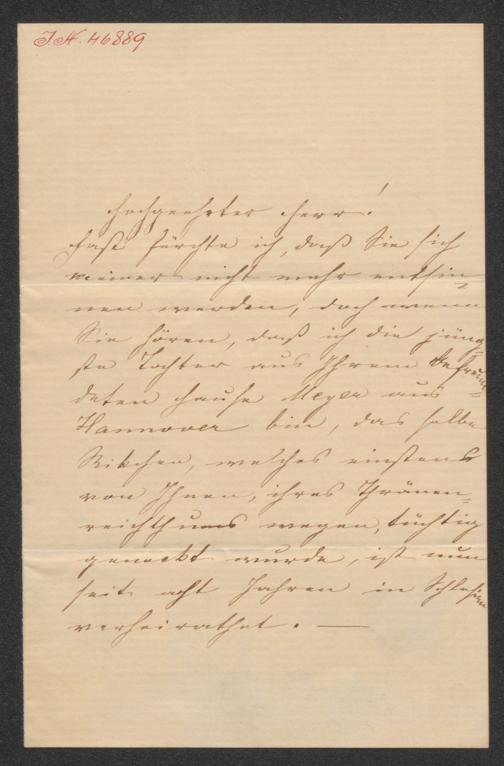 I.N. 46889
Hochgeehrter Herr!
Fast fürchte ich, daß Sie sich
meiner nicht mehr entsin-
nen werden, doch wenn
Sie hören, daß ich die jüng
ste Tochter aus Ihrem befreun-
deten Hause Meyer aus
Hannover bin, das selbe
Rikchen, welches einstens
von Ihnen, ihres Thränen-
reichthums wegen, tüchtig
geneckt wurde, ist nun
seit acht Jahren in Schlesien
verheirathet. —